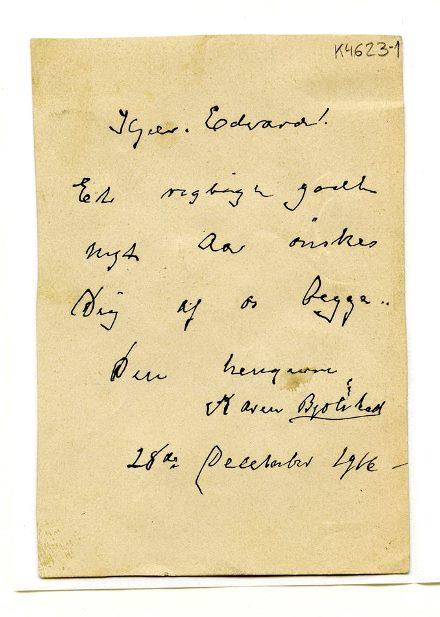 K4623-1
Kjær. Edvard!
Et rigtigt godt
nyt Aar önskes
Dig af os begge..
Den hengivne
Karen
28de December 1916 –